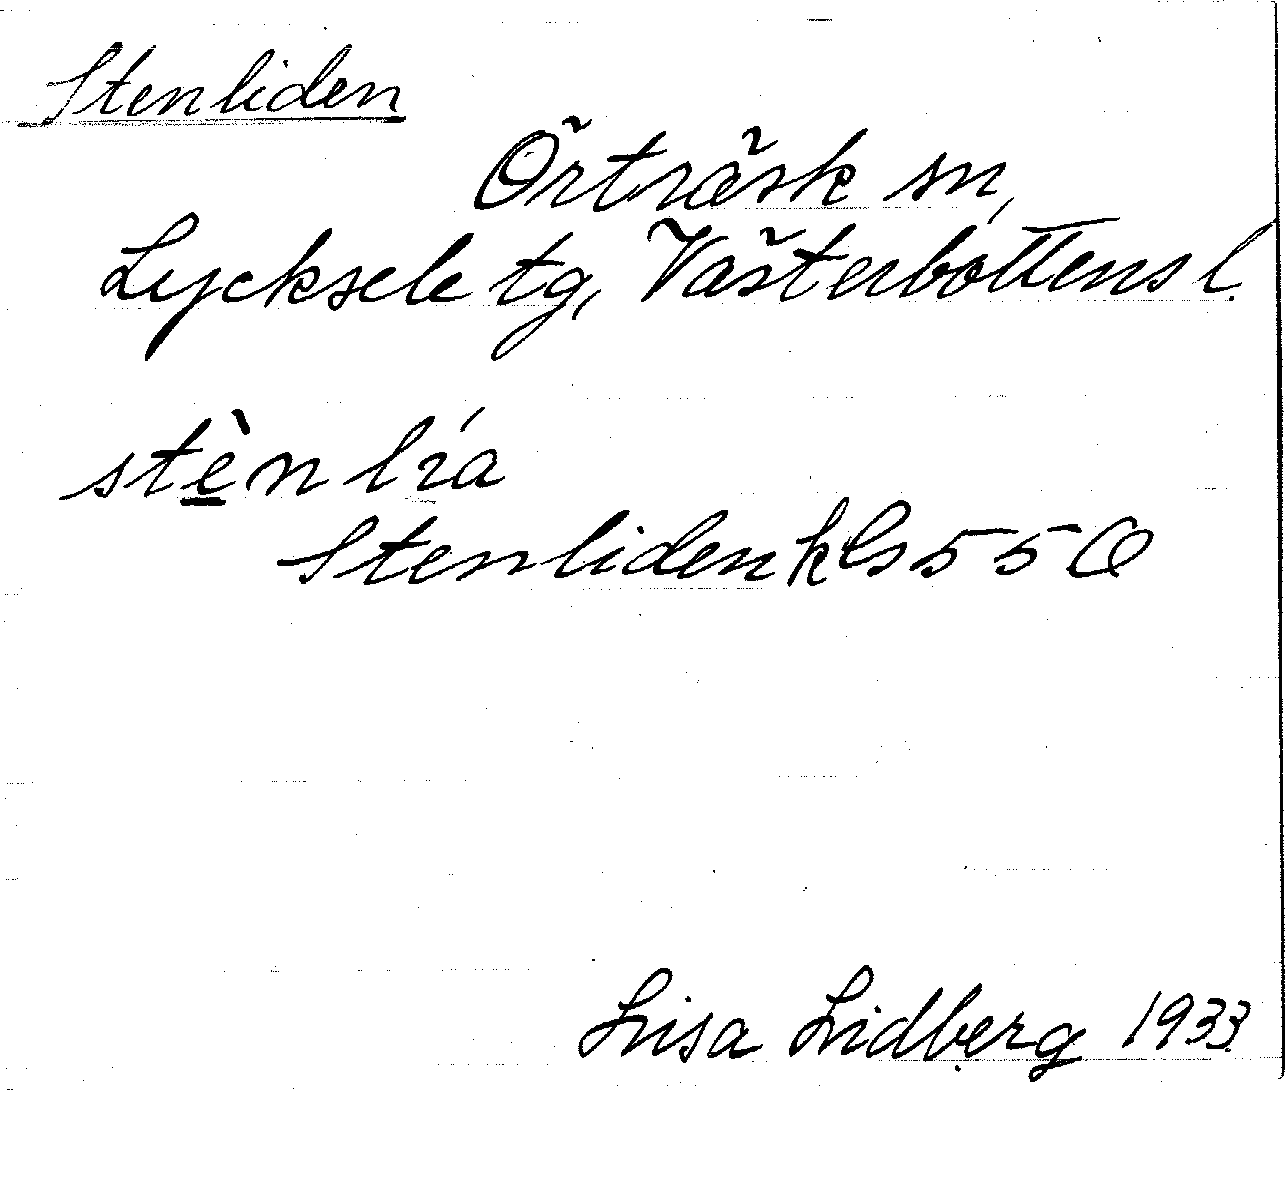 Stenliden
Örträsk sn,
Lycksele tg, Västerbottens l.
stèn lía
Stenliden kls 55 Ö
Lisa Lidberg 1933